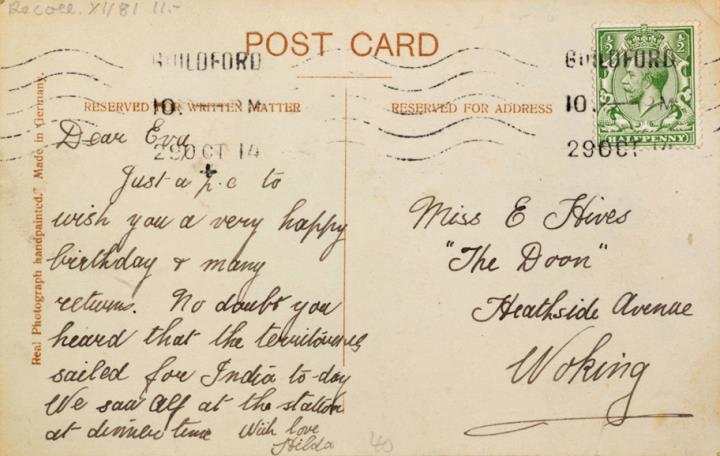 Recoll. XI/81 11.-
POST CARD
GUILDFORD
10. — PM
29 OCT 14
GUILDFORD
10. — PM
29 OCT 14
HALFPENNY
RESERVED FOR WRITTEN MATTER
RESERVED FOR ADDRESS
Real Photograph handpainted." Made in Germany.
Dear Evy
Just a p.c to
wish you a very happy
birthday & many
returns. No doubt you
heard that the
sailed for India to-day
We saw Alf at the station
at dinner time With love
Hilda
Miss E Hives
"The Doon"
Heathside Avenue
Woking
40